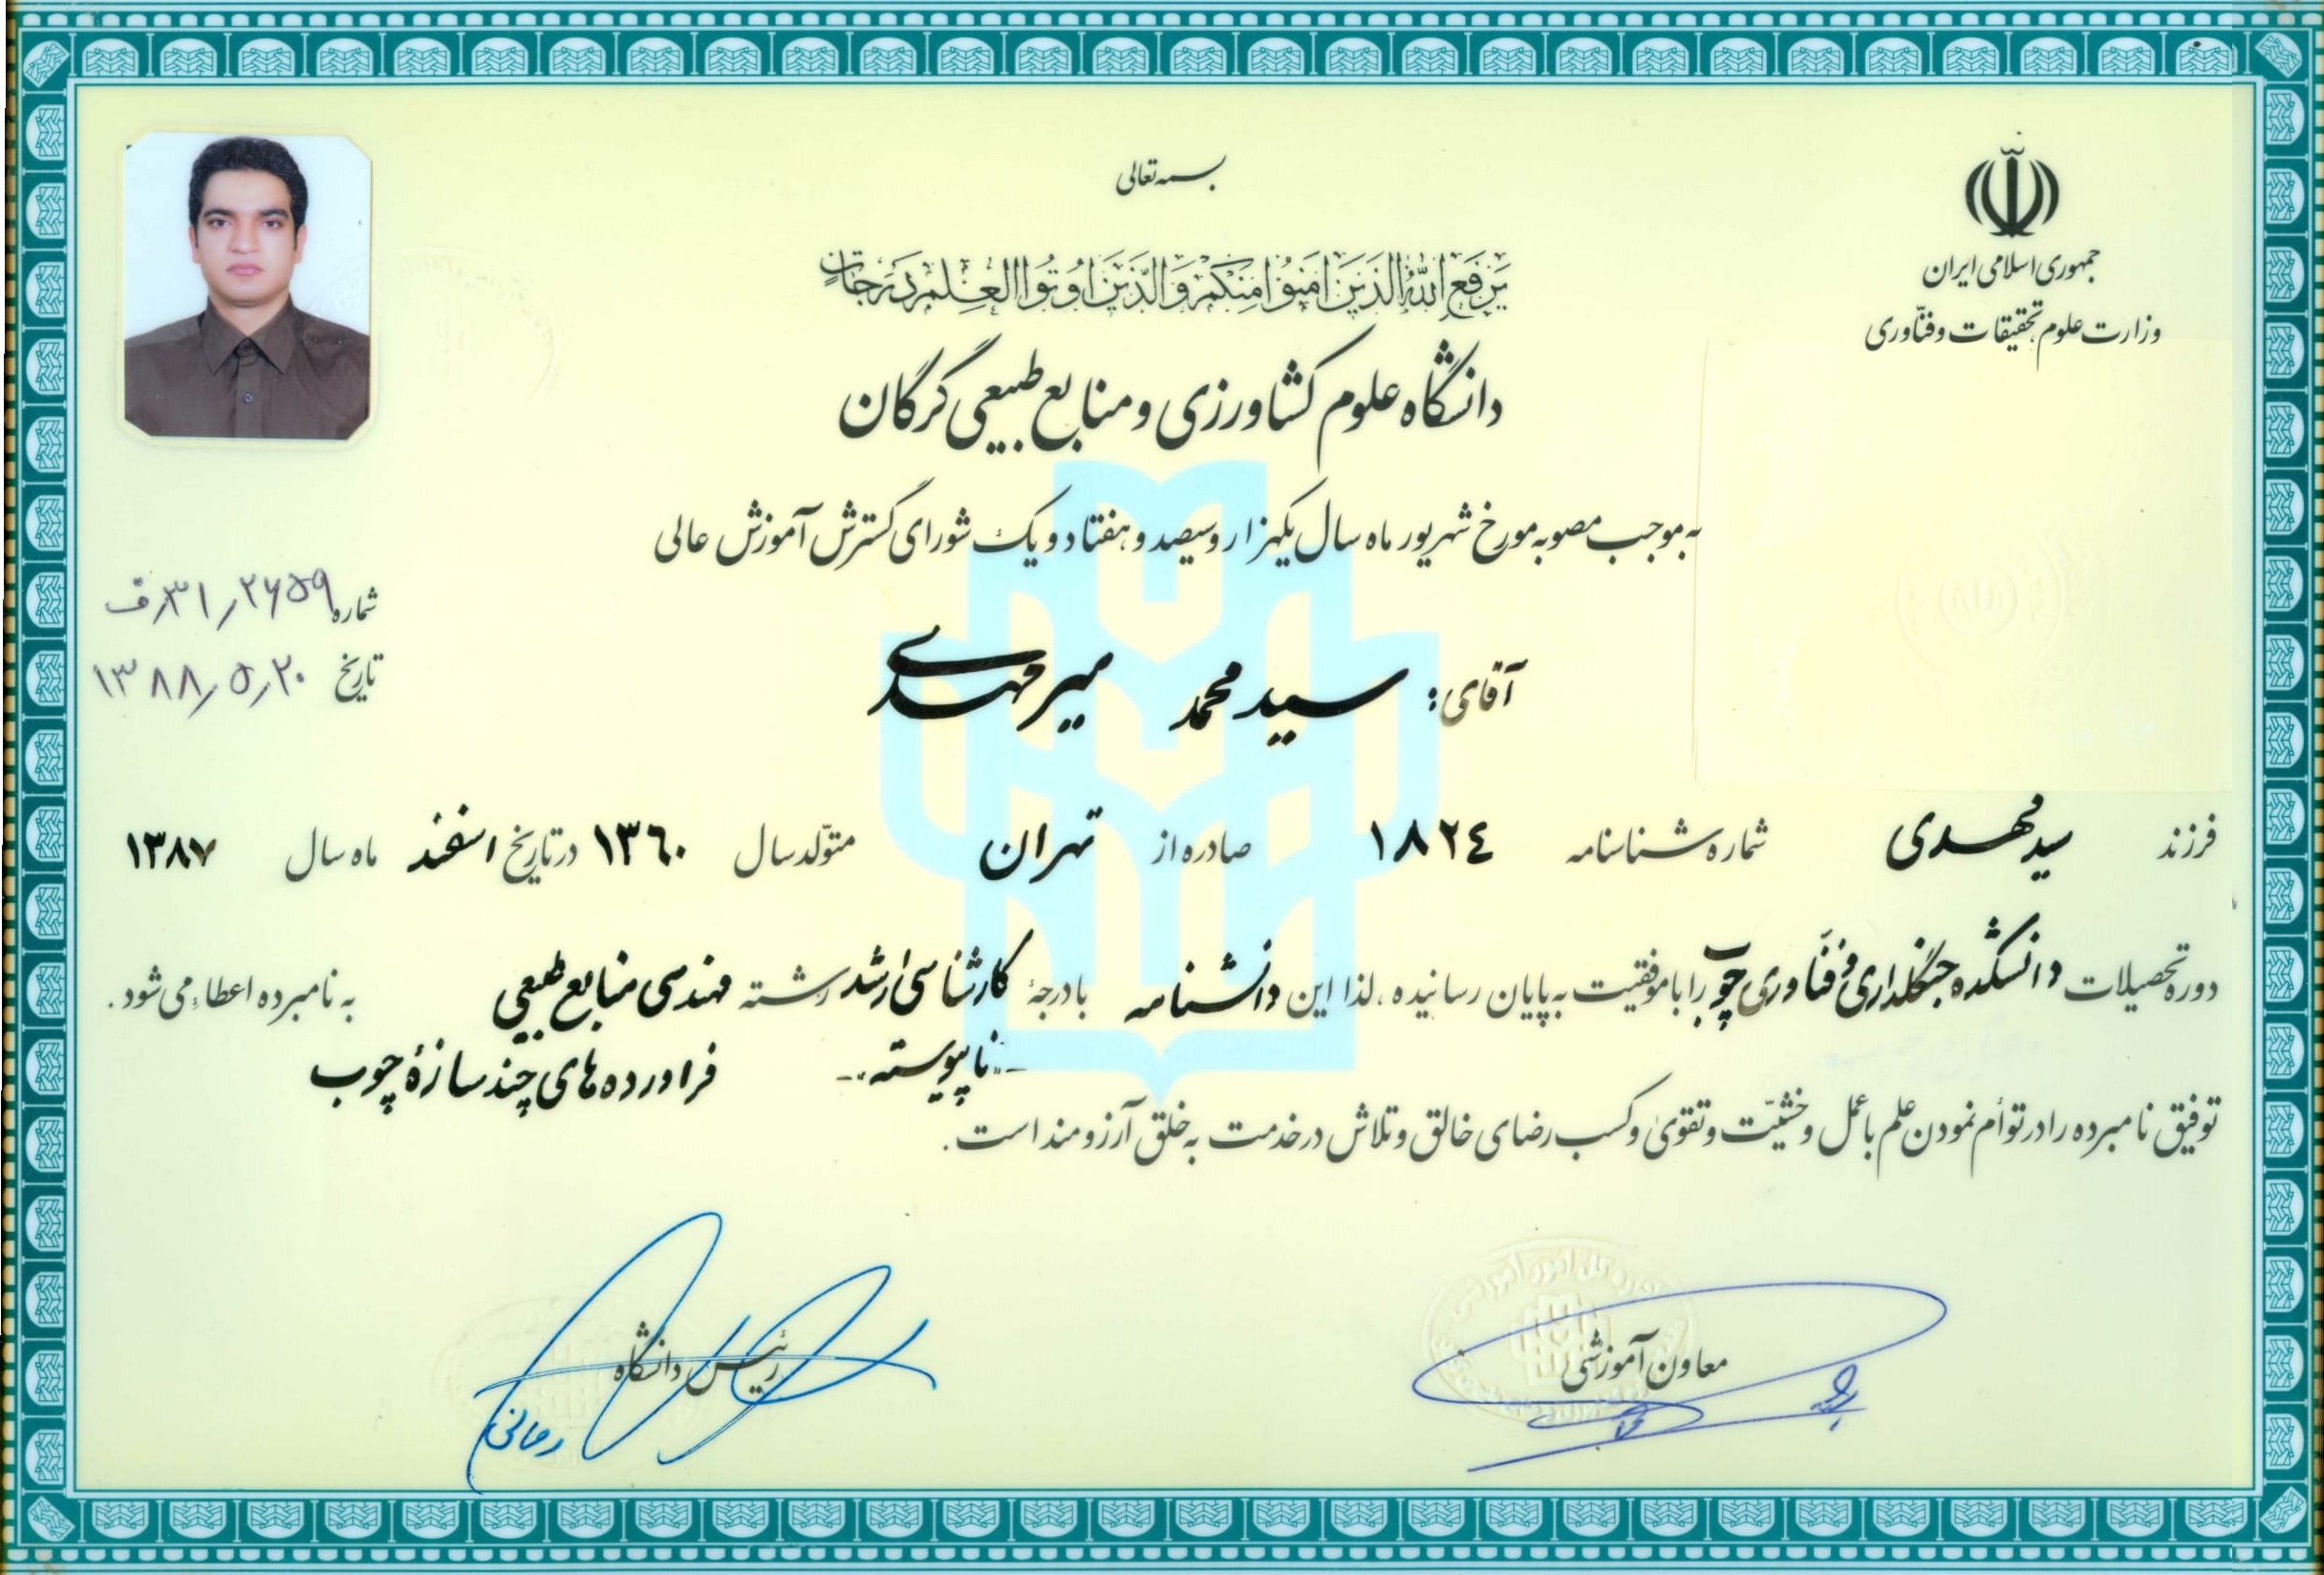 بسمه تعالی
یَرْفَعِ اللهُ الَّذینَ امَنوُا مِنْکُمْ وَالَّذینَ اوُتُوا الْعِلْمَ دَرَجاتٍ
جمهوری اسلامی ایران
وزارت علوم، تحقیقات و فنّاوری
دانشگاه علوم کشاورزی و منابع طبیعی گرگان
به موجب مصوبه مورخ شهریور ماه سال یکهزار و سیصد و هفتاد و یک شورای گسترش آموزش عالی
شماره ۳۱٫۲۶۵۹٫ف
تاریخ ۱۳۸۸٫۵٫۲۰
آقای: سید محمد میرمهدی
فرزند سید مهدی شماره شناسنامه ۱۸۲٤ صادره از تهران متولّد سال ۱۳٦۰ در تاریخ اسفند ماه سال ۱۳۸۷
دوره تحصیلات دانشکده جنگلداری و فنّاوری چوب را با موفقیت به پایان رسانیده، لذا این دانشنامه با درجهٔ کارشناسی ارشد رشته مهندسی منابع طبیعی به نامبرده اعطاء می شود.
-"ناپیوسته"- فراورده های چند سازهٔ چوب
توفیق نامبرده را در توأم نمودن علم با عمل و خشیّت و تقوی و کسب رضای خالق و تلاش در خدمت به خلق آرزومند است.
معاون آموزشی
رئیس دانشگاه
اداره کل امور آموزشی